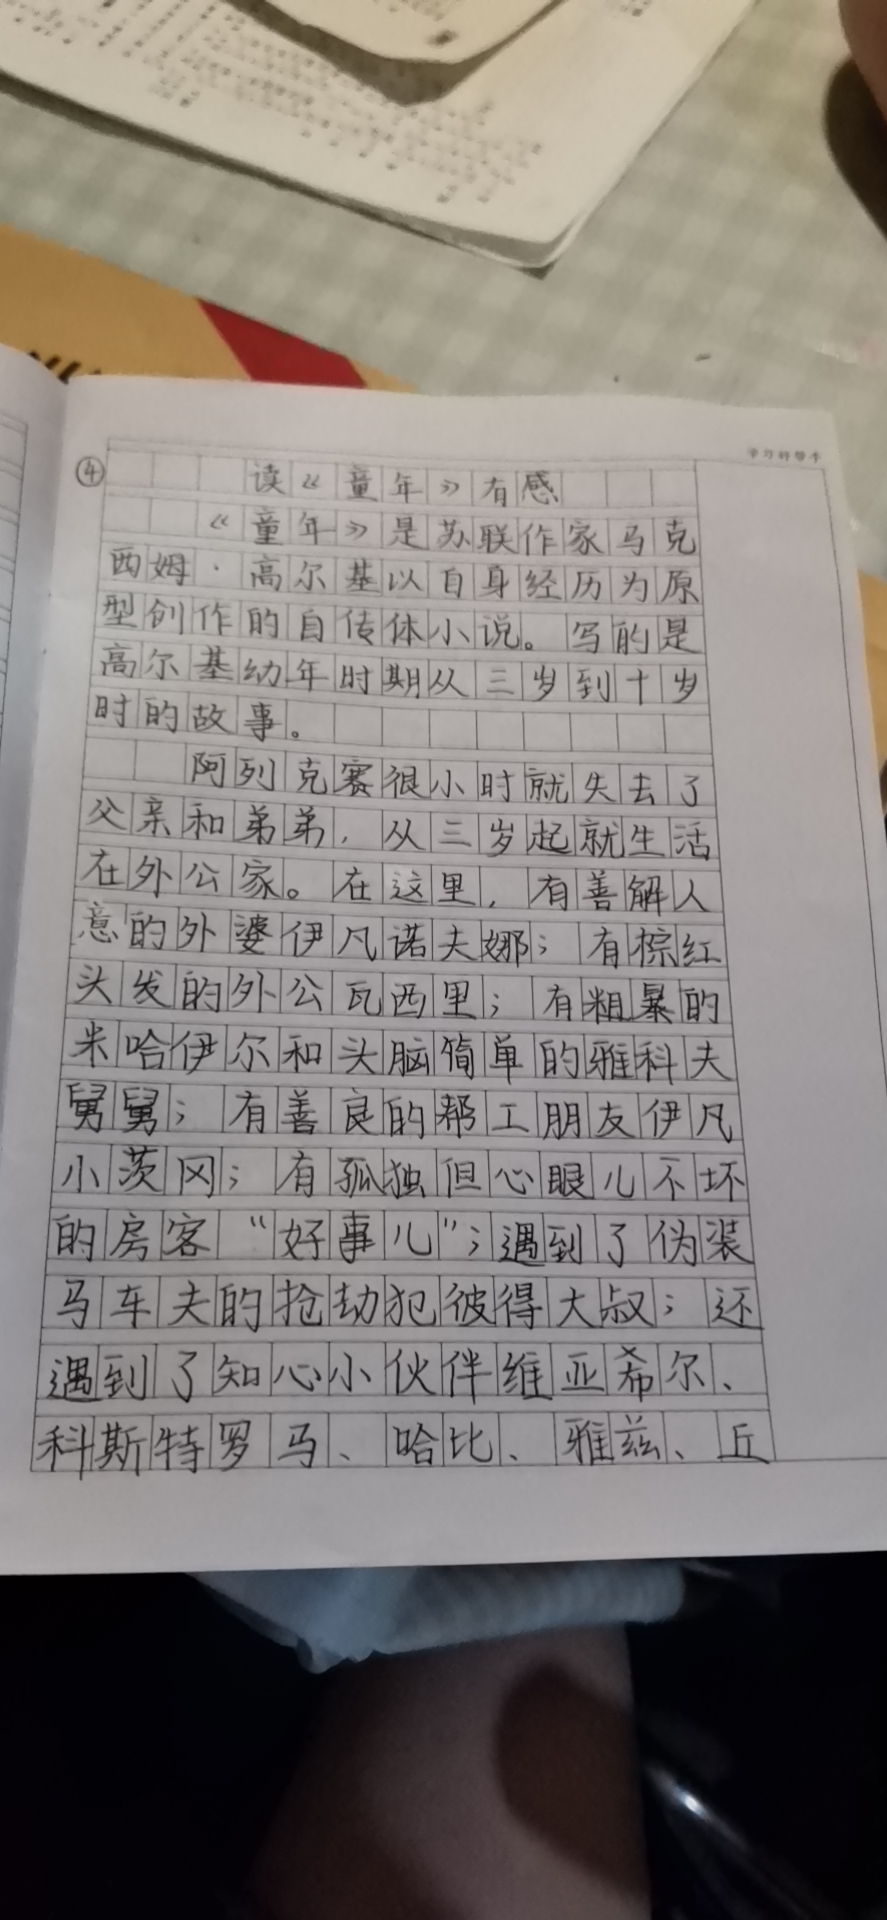 学习好帮手
④
读《童年》有感
《童年》是苏联作家马克
西姆·高尔基以自身经历为原
型创作的自传体小说。写的是
高尔基幼年时期从三岁到十岁
时的故事。
阿列克赛很小时就失去了
父亲和弟弟,从三岁起就生活
在外公家。在这里,有善解人
意的外婆伊凡诺夫娜;有棕红
头发的外公瓦西里;有粗暴的
米哈伊尔和头脑简单的雅科夫
舅舅;有善良的帮工朋友伊凡
小茨冈;有孤独但心眼儿不坏
的房客“好事儿”;遇到了伪装
马车夫的抢劫犯彼得大叔;还
遇到了知心小伙伴维亚希尔、
科斯特罗马、哈比、雅兹、丘